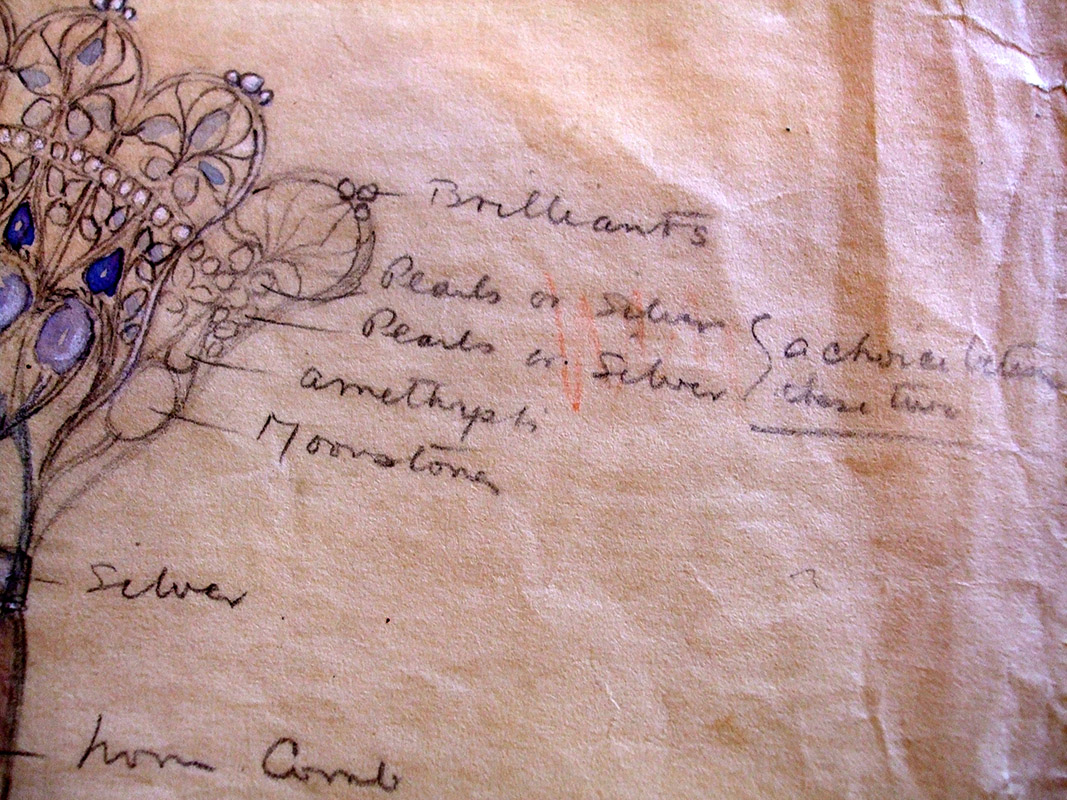 Brilliants
Pearls or Silver
Pearls or Silver } a choice between
these two
amethysts
Moonstones
Silver
horn Comb